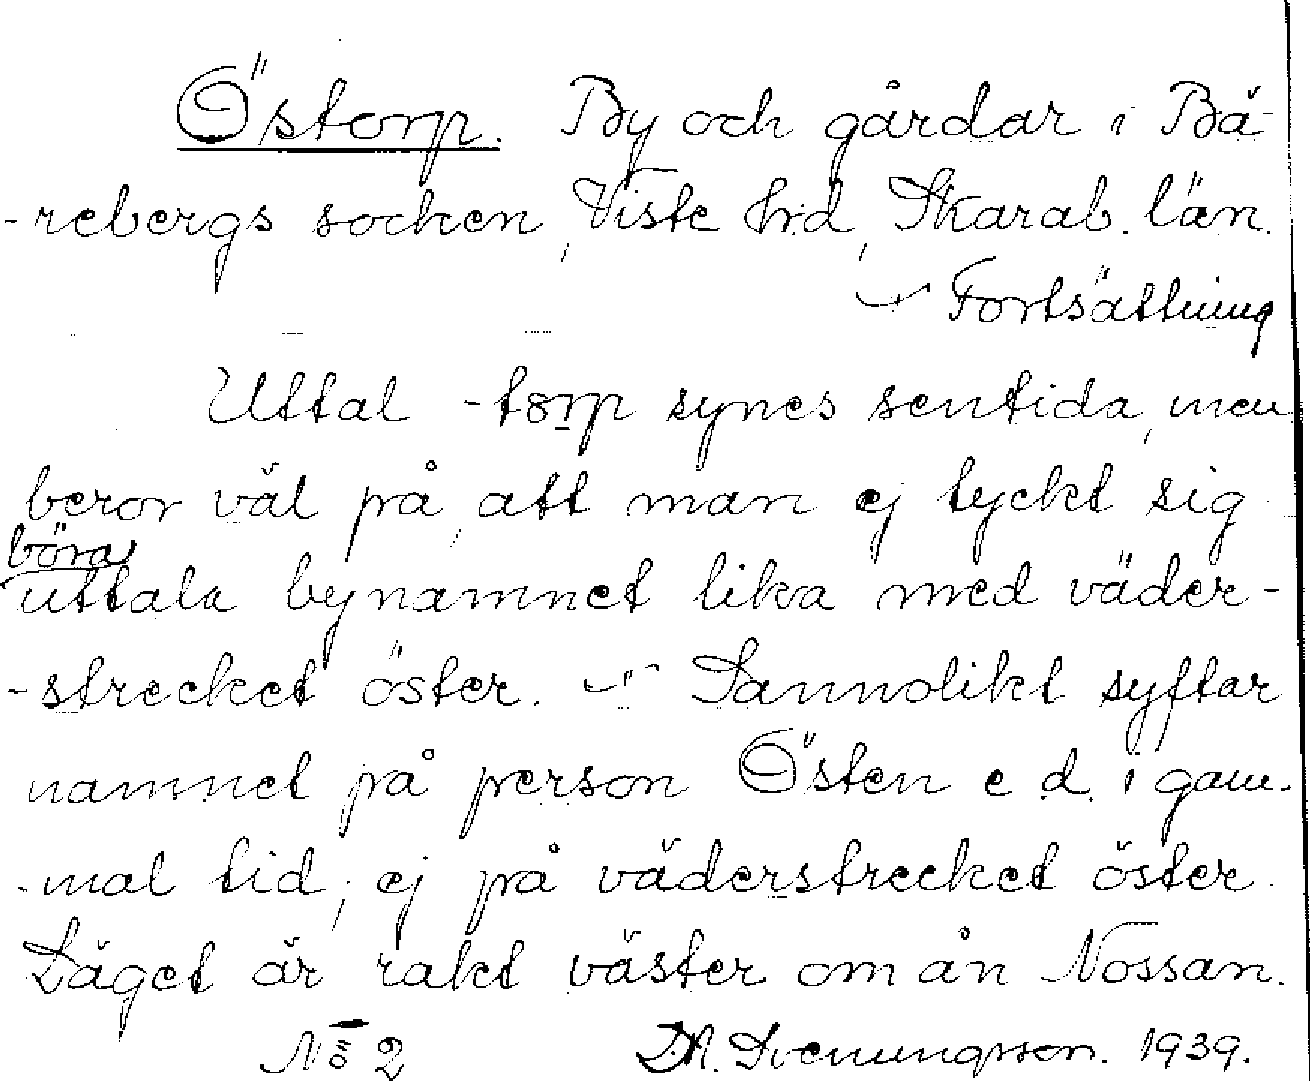 Östorp. By och gårdar i Bä-
-rebergs socken, Viste hrd, Skarab. län.
Fortsättning
Uttal -torp synes sentida, men
beror väl på, att man ej tyckt sig
böra
uttala bynamnet lika med väder-
-strecket öster. - Sannolikt syftar
namnet på person Östen e d. i gam-
-mal tid, ej på väderstrecket öster.
Läget är rakt väster om ån Nossan.
No 2 D.A. Svenungsson. 1939.